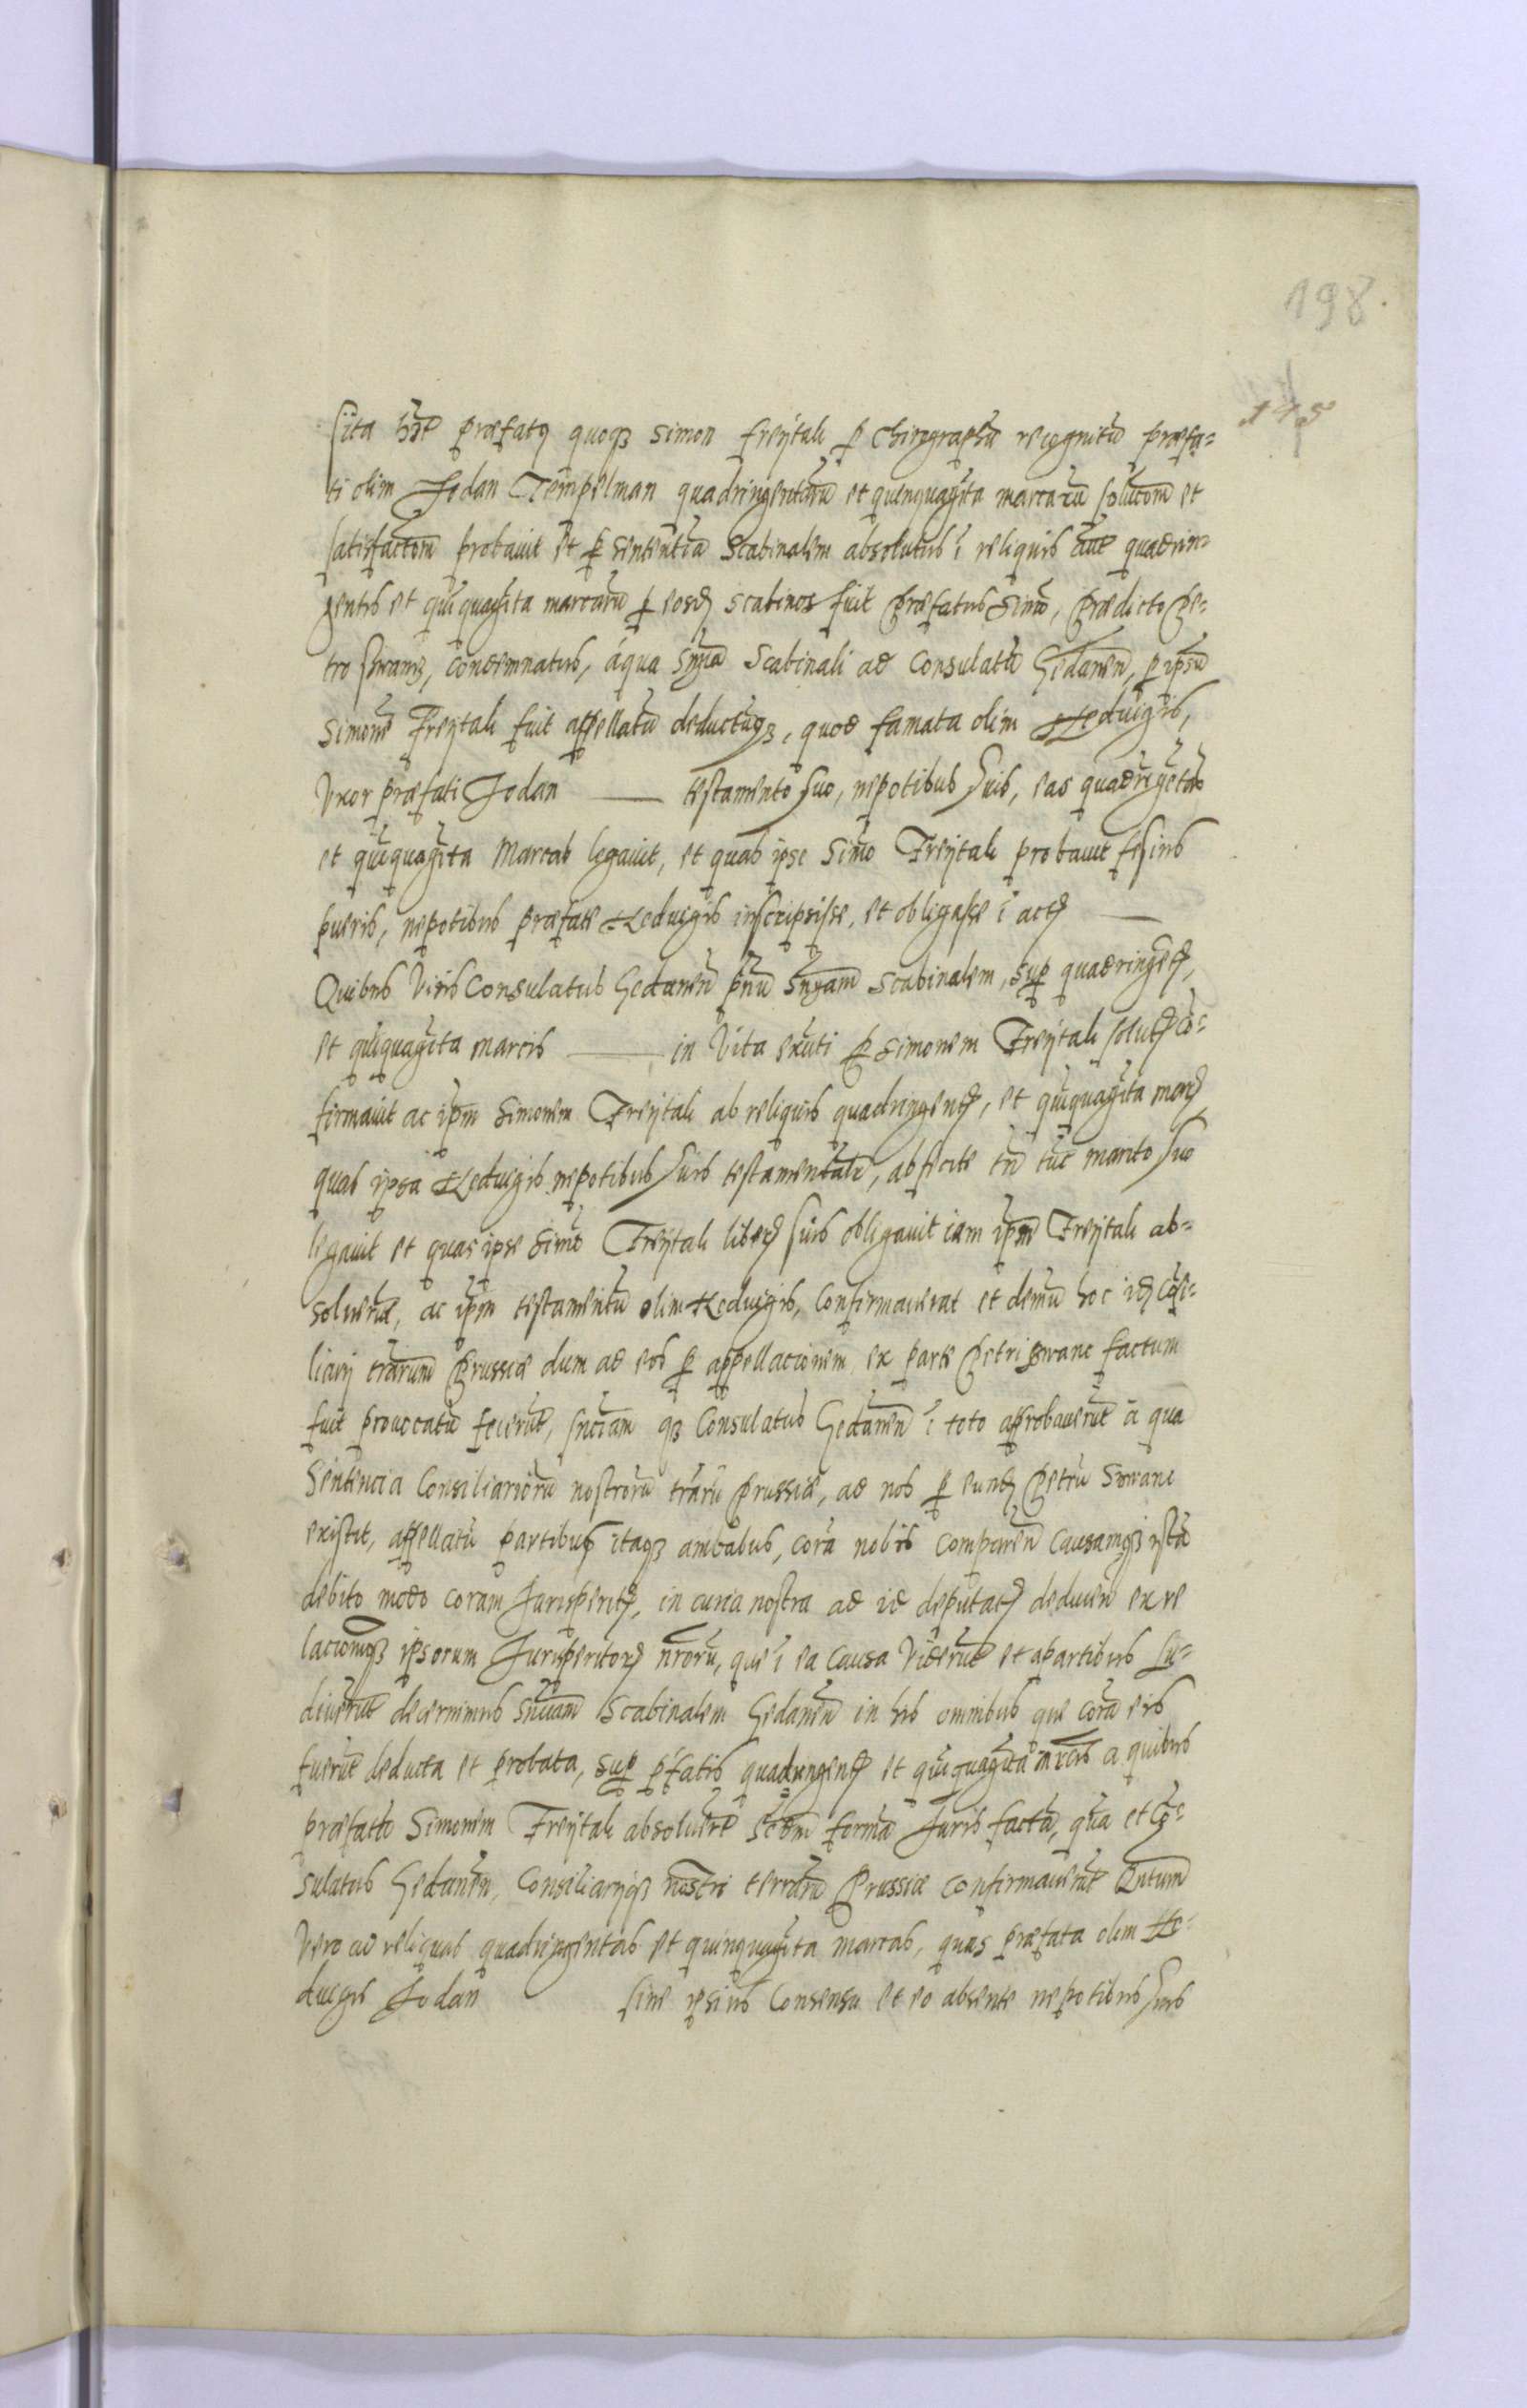 198.
175
sita hẽt præfatꝗ quoqꝫ Simon Freÿtali ꝑ Chirographũ recognitũ præfa=
ti olim Jodan Tempelman quadringentarũ et quinquagĩta marcarũ solucoñm et
satisfactoñm probavit et ꝑ sententiã Scabinalem absolutus ĩ reliquis aũt quadrin=
gentis et quĩquagĩta marcarũ ꝑ eosd̃ Scabinos fuit præfatus Simõ, prædicto Pe=
tro Swanꝫ, condemnatus, áqua sñia Scabinali ad Consulatũ Gedaneñ, ꝑ ipsũ
Simonẽ Freÿtali fuit appellatũ deductũqꝫ, quod famata olim Heduigis,
Vxor præfati Jodan —— testamento suo, nepotibus suis, eas quadrĩgẽtas
et quĩquagĩta Marcas legavit, et quas ipse Simõ Freÿtali probavit se suis
pueris, nepotibus præfate Heduigis inscripsisse, et obligasse ĩ actꝭ ——
Quibus Visis Consulatus Gedaneñ pñũ sñiam Scabinalem, suꝑ quadringẽtꝭ,
et quĩquagĩta marcis ——, in Vita exuti ꝑ Simonem Freÿtali solutꝭ cõ=
firmavit ac iꝑm Simonem Freÿtali ab reliquis quadringentꝭ, et quĩquagĩta marꝭ
quas ipsa Heduigis nepotibus suis testamentalr̃, absente tñ tũc marito suo
legavit et quas ipse Simõ Freÿtali liberꝭ suis obligavit iam iꝑm Freÿtali ab=
soluerũt, ac iꝑm testamentũ olim Heduigis, Confirmauerat et demũ hoc id̃ Cõsi=
liarij trãrum Prussiæ dum ad eos ꝑ appellacionem ex parte Petri Swanc factum
fuit provocatũ fecerũt, sñciam qꝫ Consulatus Gedaneñ ĩ toto approbauerũt à qua
Sentencia Consiliariorũ nostrorũ trãrũ Prussiæ, ad nos ꝑ eund̃ Petrũ Swanc
existit, appellatũ partibus itaqꝫ ambabus, corã nobis Compareñ Causamqꝫ istã
debito modo coram Jurisperitꝭ, in curia nostra ad id deputatꝭ deduceñ ex re
lacionẽqꝫ ipsorum Jurisperitorꝭ nr̃orũ, que ĩ ea Causa Viderũt et apartibus Au=
diuerũt decernimus sñciam Scabinalem Gedaneñ in his omnibus que corã eis
fuerũt deducta et probata, suꝑ p̃fatis quadringentꝭ et quĩquagĩta mr̃cis a quibus
præfato Simonem Freÿtali absoluerũt sc̃dm formã Juris factã, quã et Cõ=
sulatus Gedaneñ, Consiliarijqꝫ nostri terrarũ Prussiæ confirmauerũt Qũtum
Vero ad reliquas quadringentas et quinquagĩta marcas, quas præfata olim He=
duigis Jodan sine ipsius Consensu et eo absente nepotibus suis